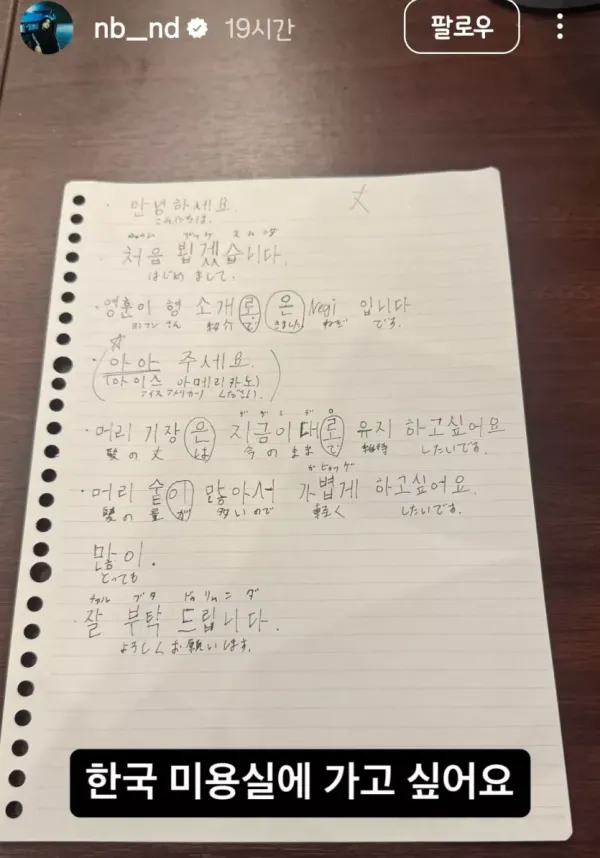 nb__nd 19시간 팔로우
· 안녕하세요. 丈
こんにちは。
· 처음 뵙겠습니다.
はじめまして。
· 영훈이 형 소개로 온 Negi 입니다
ヨンフン さん 紹介 で きました ねぎ です。
☆
아아 주세요.
(아이스 아메리카노)
アイスアメリカーノ ください。
· 머리 기장은 지금이대로 유지 하고싶어요
髪 の 丈 は 今 の まま で 維持 したいです。
· 머리 숱이 많아서 가볍게 하고싶어요.
髪 の 量 が 多いので 軽く したいです。
많이.
とっても
· 잘 부탁 드립니다.
よろしくお願いします。
한국 미용실에 가고 싶어요